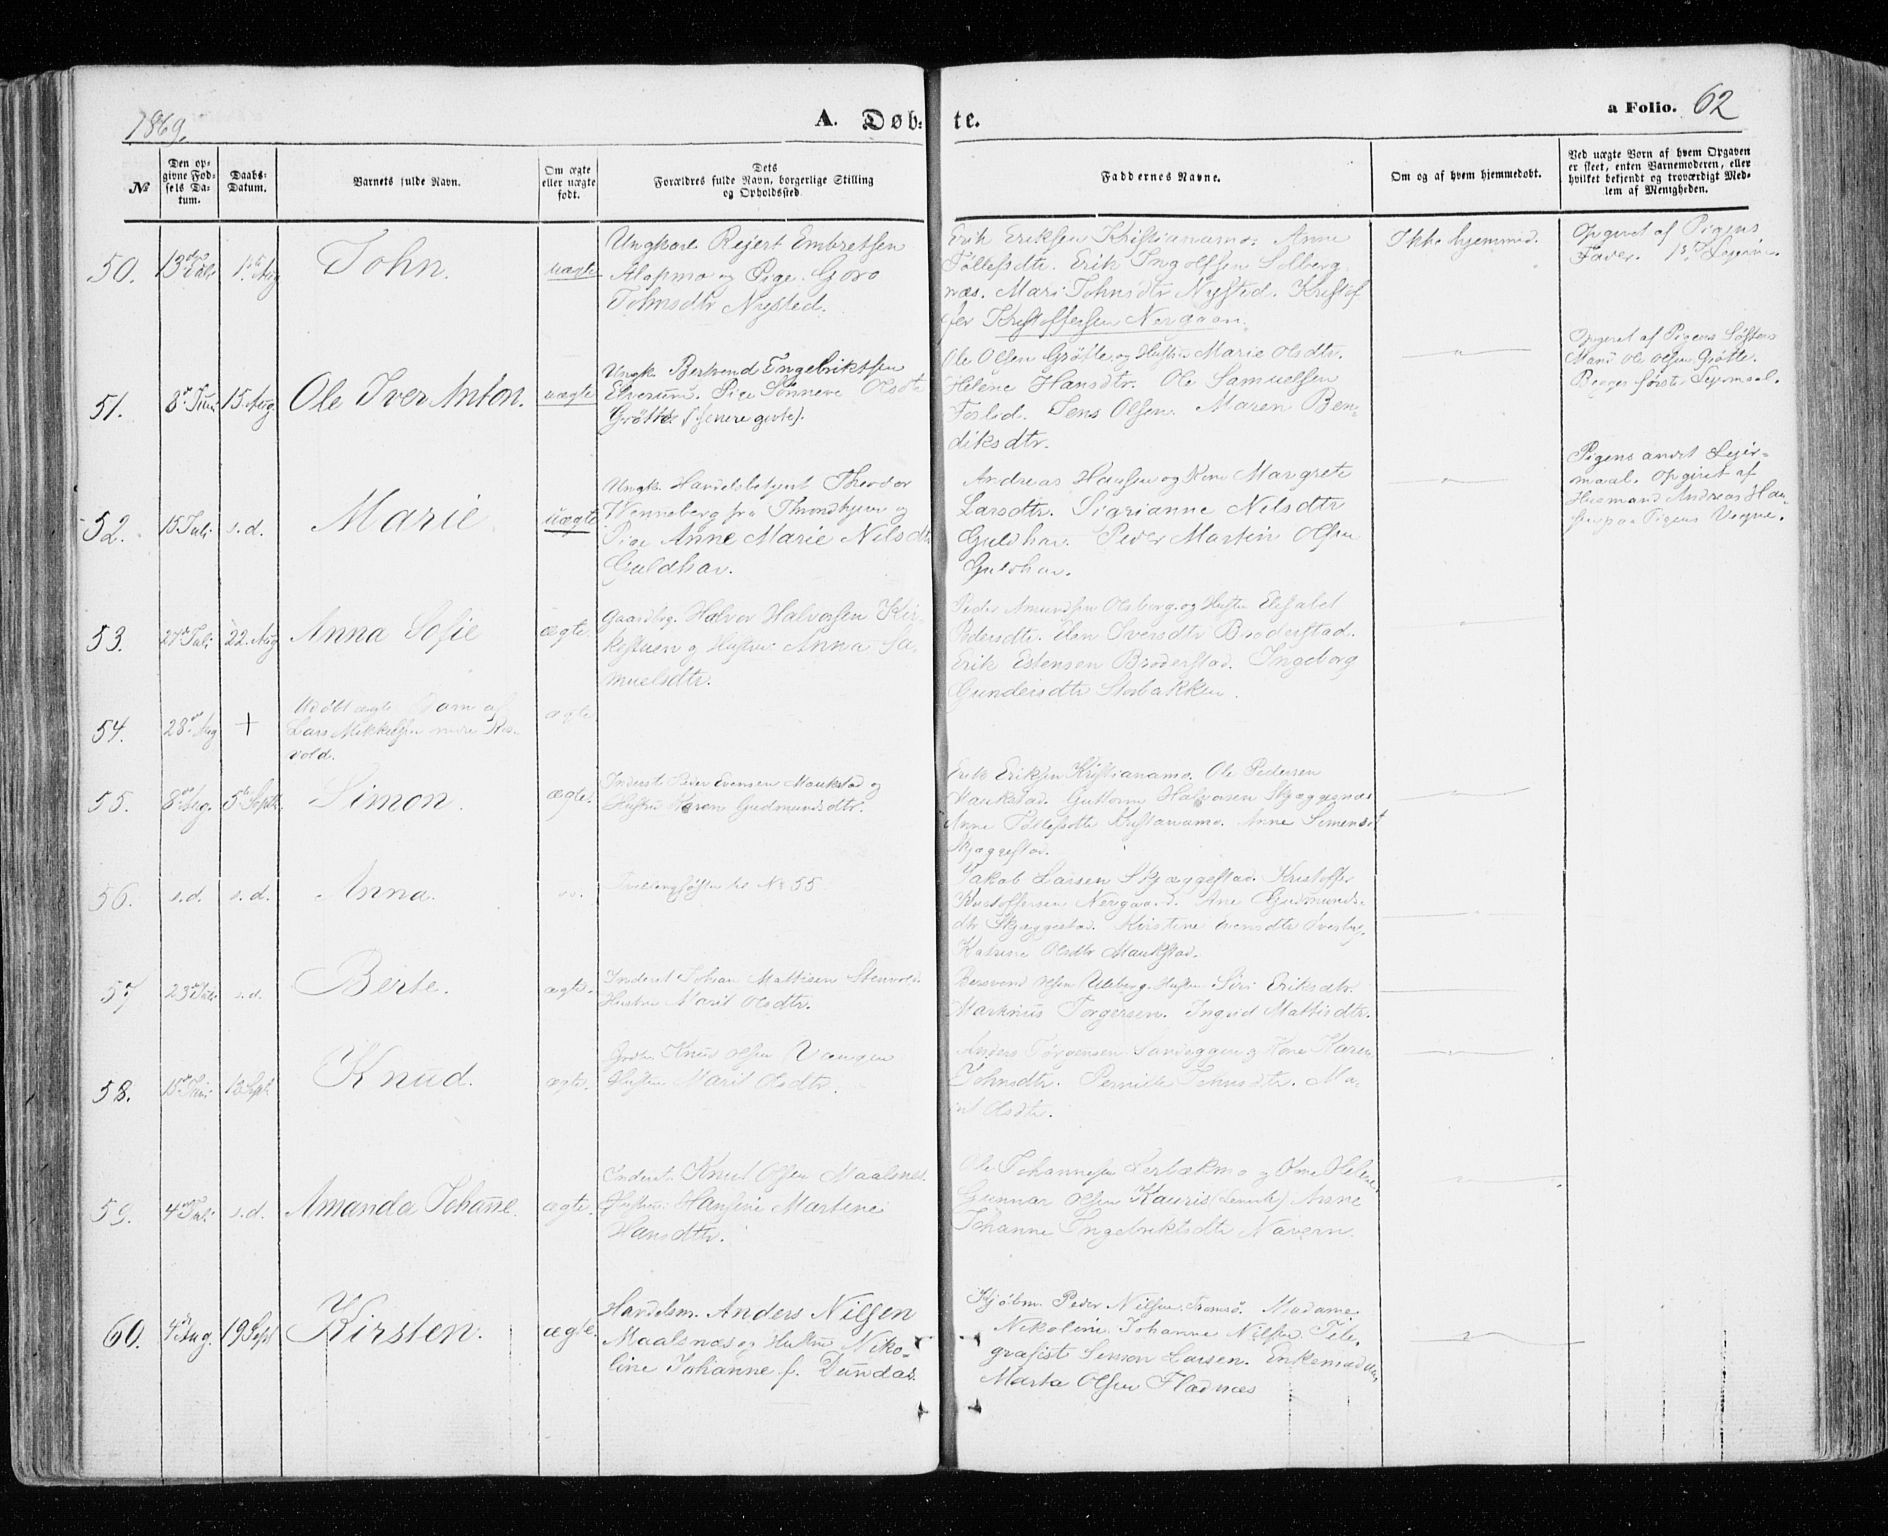 1869.
A. Døbte.
a Folio. 62
№
Den opgivne Fødsels Datum.
Daabs-Datum.
Barnets fulde Navn.
Om ægte eller uægte født.
Dets Forældres fulde Navn, borgerlige Stilling og Opholdssted
Faddernes Navne.
Om og af hvem hjemmedøbt.
Ved uægte Børn af hvem Opgaven er skeet, enten Barnemoderen, eller hvilket bekjendt og troværdigt Medlem af Menigheden.
50. 13 Juli 1ste Aug John. uægte
Ungkarl Rejert Embretsen
Alapmo og Pige Goro
Johnsdtr Nysted.
Erik Eriksen Kristianamo. Anne
Tollefsdtr. Erik Ingolfsen Solberg
næs. Mari Johnsdtr Nysted. Kristof
fer Kristoffersen Nergaan.
Ikke hjemmed.
Opgivet af Pigens
Fader.
51. 8de Juni 15 Aug. Ole Iver Anton. uægte
Ungk. Bertvend Engebriktsen
Elverum. Pige Sønneve Olsdtr
Grøtte. (senere givte).
Ole Olsen Grøtte og Hustru Marie Olsdtr.
Helene Hansdtr. Ole Samuelsen
Foslid. Jens Olsen. Maren Ben-
diksdtr.
Opgivet af Pigens Søsters
Mand Ole Olsen Grøtte.
Begges første Lejermaal.
52. 15 Juli s.d. Marie uægte
Ungk. Handelsbetjent Theodor
Wenneberg fra Throndhjem og
Pige Anne Marie Nilsdtr
Guldhav.
Andreas Hansen og Kone Margrete
Larsdtr. Nilsdtr
Guldhav. Peder Martin Olsen
Guldhav.
Pigens andet Lejer-
maal. Opgivet af
Husmand Andreas Han-
sen paa Pigens Vegne.
53. 27 Juli 22. Aug Anna Sofie ægte
Gaardbrg. Halvor Halvorsen Kir-
kestuen og Hustru Anna Sa-
muelsdtr.
Peder Amundsen Olsborg og Hustru Elisabet
Pedersdtr. Elen Iversdtr Broderstad.
Erik Estensen Broderstad. Ingeborg
Gundersdtr Storbakken.
54. 28de Aug +
Udøbt ægte Barn af
Lars Mikkelsen nedre Ros-
vold.
ægte
55. 8de Aug. 5te Septb. Simon. ægte.
Inderst Peder Evensen Maukstad og
Hustru Karen Gudmundsdtr.
Erik Eriksen Kristianamo. Ole Pedersen
Maukstad. Guttorm Halvorsen Skjæggenæs
Anne Tollefsdtr Kristianamo. Anne Simensdt
Skjæggestad.
56. s.d. s.d. Anna.
Tvillingsøster til No 55.
Jakob Larsen Skjæggestad. Kristoffer
Kristoffersen Nergaard. Ane Gudmunds-
dtr Skjæggestad. Kirstine Evensdtr Øverby.
Katrine Olsdtr Maukstad.
57 23 Juli s.d. Berte. ægte.
Inderst Johan Mattisen Stenvold.
Hustru Marit Olsdtr.
Olsen Uleberg. Hustru Siri Eriksdtr.
Markus Torgersen. Ingrid Mattisdtr.
58. 15 Juni 13 Sept Knud. ægte.
Grdbr. Knud Olsen Vangen
Hustru Marit Olsdtr.
Anders Jørgensen Sandeggen og Kone Karen
Johnsdtr. Pernille Johnsdtr. Ma-
rit Olsdtr.
59. 4de Juli s.d. Amanda Johanne. ægte.
Inderst. Knut Olsen Maalsnes
Hustru: Hansine Martine
Hansdtr.
Ole Johannesen Lerbækmo og Kone Helene
Gunnar Olsen Kauris Anne
Johanne Ingebriktsdtr Navern.
60. 4de Aug. 19 Sept Kirsten. ægte.
Handelsm. Anders Nilsen
Maalsnæs og Hustru Niko-
line Johanne f. Dundas.
Kjøbm. Peder Nilsen, Tromsø. Madame
Nikoline Johanne Nilsen. Tele-
grafist Simon Larsen. Enkemadam
Marta Olsen Fladnæs